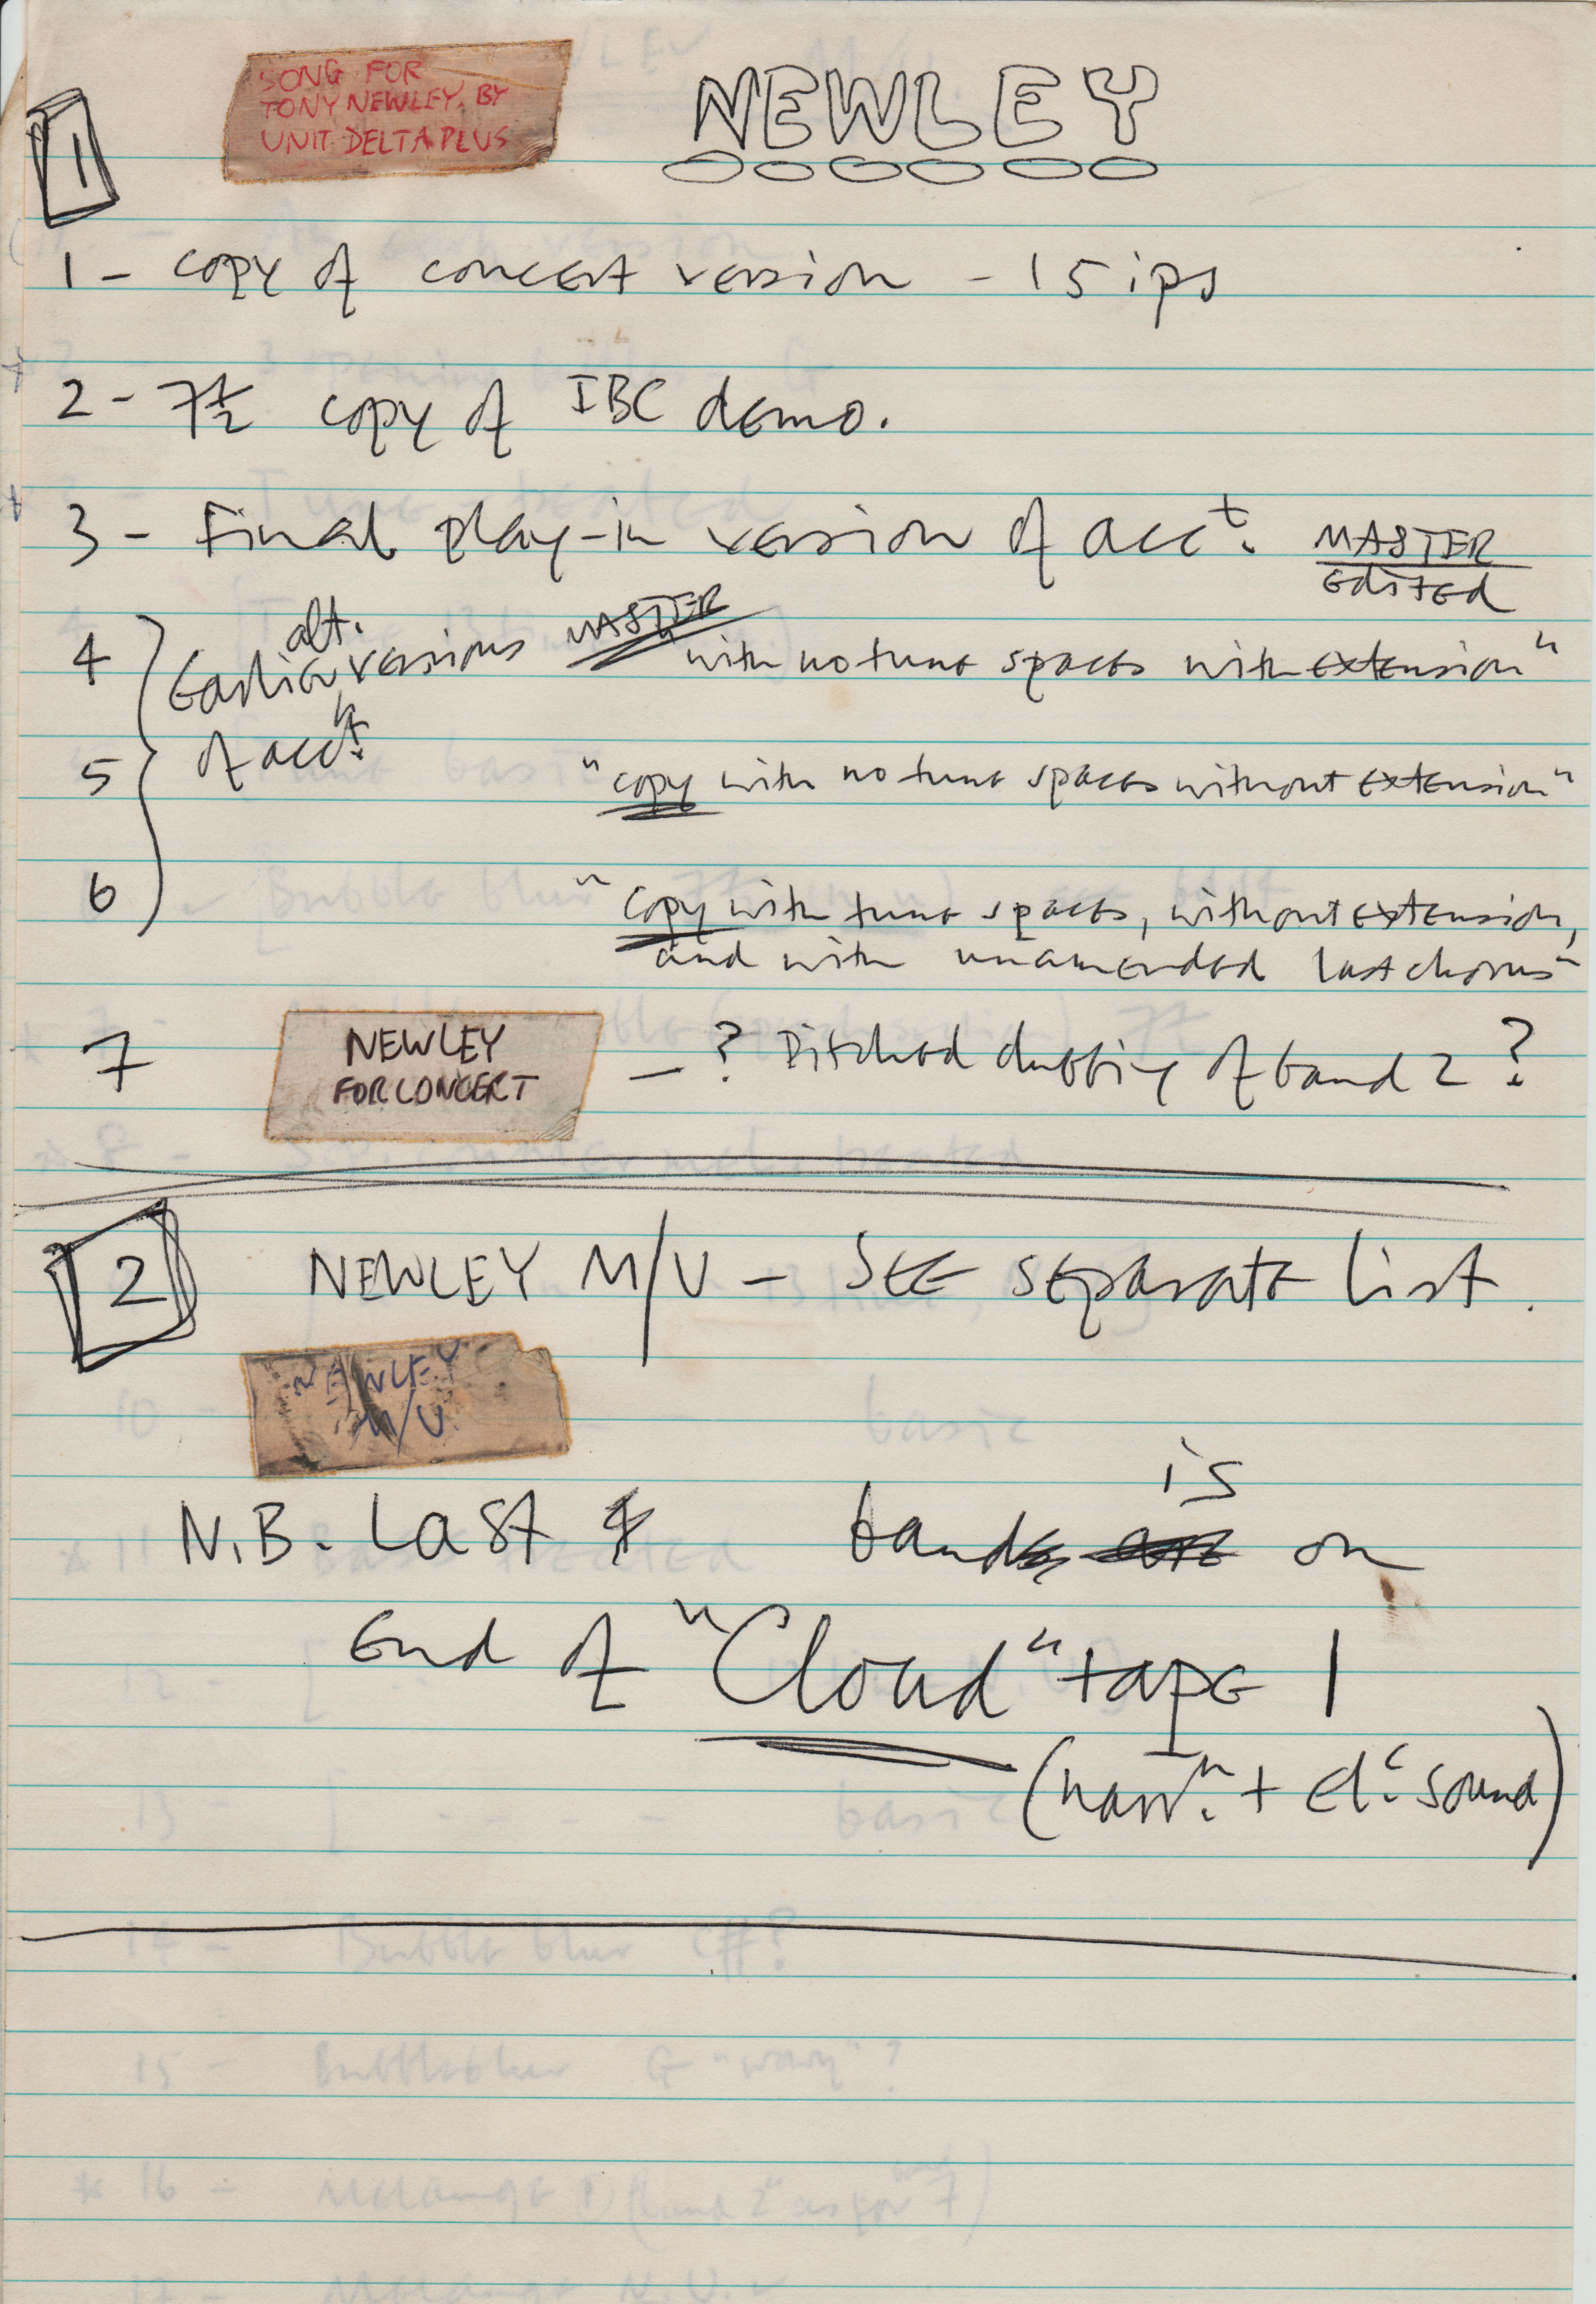 SONG FOR
TONY NEWLEY. BY
UNIT DELTA PLUS
NEWLEY
1
1 - copy of concert version - 15 ips
2 - 7½ copy of IBC demo.
3 - Final play-in version of acct. MASTER
edited
4 Earlier alt. versions MASTER with no tune spaces with extension"
of acct.
5 "copy with no tune spaces without extension"
6 "copy with tune spaces, without extension,
and with unamended last chorus"
7 NEWLEY
FOR CONCERT
- ? Pitched dubbing of band 2 ?
2 NEWLEY M/U - SEE separate list.
NEWLEY
M/U
N.B. Last band is on
End of "Cloud" tape 1
(narrn. + elc. sound)
10 basic
13 basic
14 - Bubble blur C#?
15 - Bubble blur G "wavy"?
* 16 - Melange
17 - Melange